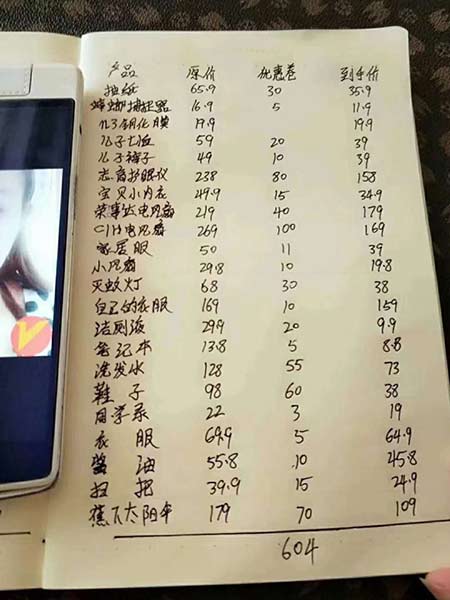 产品 原价 优惠卷 到手价
抽纸 65.9 30 35.9
蟑螂捕捉器 16.9 5 11.9
钢化膜 19.9 19.9
儿子七血 59 20 39
儿子裤子 49 10 39
志高护眼仪 238 80 158
宝贝小内衣 49.9 15 34.9
荣事达电风扇 219 40 179
电风扇 269 100 169
家居服 50 11 39
小风扇 29.8 10 19.8
灭蚊灯 68 30 38
自己的衣服 169 10 159
洁厕液 29.9 20 9.9
笔记本 13.8 5 8.8
洗发水 128 55 73
鞋子 98 60 38
同学录 22 3 19
衣服 69.9 5 64.9
酱油 55.8 10 45.8
扫把 39.9 15 24.9
蕉下太阳伞 179 70 109
604